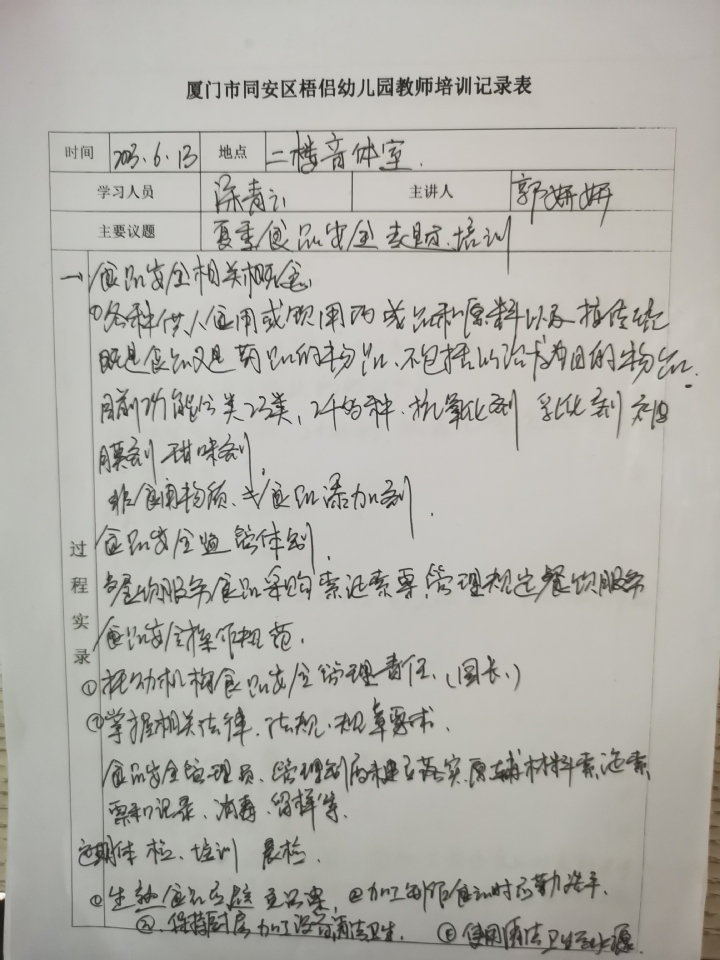 厦门市同安区梧侣幼儿园教师培训记录表
时间 2023.6.13 地点 二楼音体室.
学习人员 涂青云 主讲人 郭妍妍
主要议题 夏季食品安全 培训
过程实录
一、食品安全相关概念
①各种供人食用或饮用的成品和原料以及按传统
既是食品又是药品的物品、不包括以治疗为目的物品.
目前功能分类23类、2千多种、抗氧化剂 乳化剂
膜剂 甜味剂
非食用物质、 食品添加剂.
食品安全监管体制.
餐饮服务食品采购索证索票、管理规定餐饮服务
食品安全操作规范.
①托幼机构食品安全管理责任、(园长、)
②掌握相关法律、法规、规章要求.
食品安全管理员、管理制度 落实、原辅材料索证索
票和记录、消毒、留样等.
定期体检、培训 晨检.
①生熟食品 ②加工制作食品时 勤洗手.
保持厨房加工设备清洁卫生. 使用清洁卫生 水源.